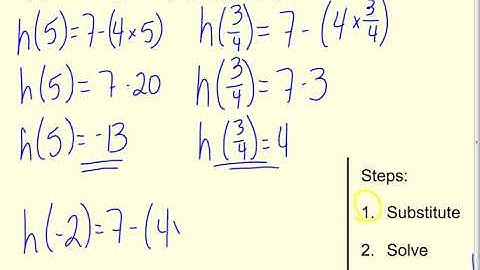 h(5)=7-(4×5)
h(5)=7-20
h(5)=-13
h(3/4)=7-(4×3/4)
h(3/4)=7-3
h(3/4)=4
h(-2)=7-(4
Steps:
1. Substitute
2. Solve